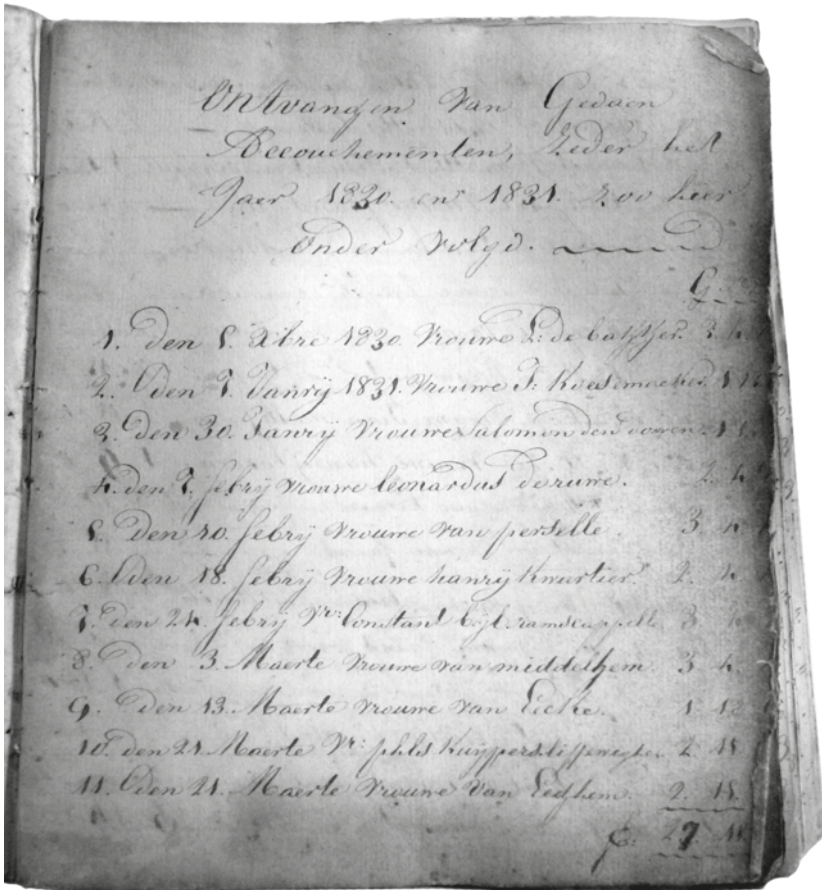 Ontvangen van Gedaen
Accouchementen, zeder het
Jaer 1830. en 1831. zoo hier
onder volgd.
G.
1. Den 5. Xbre 1830. Vrouwe L: de
2. Den 7. Janrij 1831. Vrouwe J: 1
3. Den 30. Janrij Vrouwe Salomon den 1
4. den 7. febrij vrouwe leonardus deruwe. 2 4
5. Den 10. febrij vrouwe van perselle. 3 4
6. Den 18. febrij vrouwe hanrij kwartier. 2 4
7. Den 24. febrij Vr: Constant ramscappelle 3
8. den 3. Maerte vrouwe van middelhem. 3 4
9. Den 13. Maerte vrouwe van Eecke. 1 12
10. den 21 Maerte Vr: phls Kuypers 2
11. Den 21. Maerte vrouwe van Eeghem. 2
27